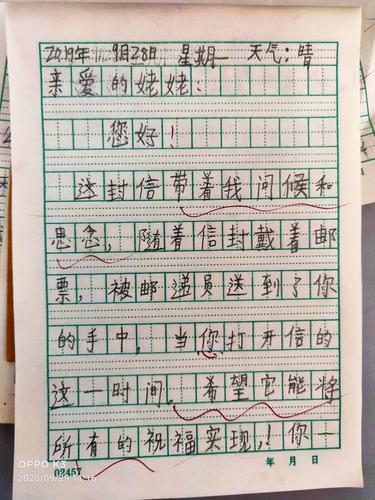 2019年9月28日 星期一 天气：晴
亲爱的姥姥：
您好！
这封信带着我问候和
思念，随着信封戴着邮
票，被邮递员送到了你
的手中，当你打开信的
这一时间。希望它能将
所有的祝福实现，！你一
02457
年 月 日
OPPO K3
2020/09/29 11:16